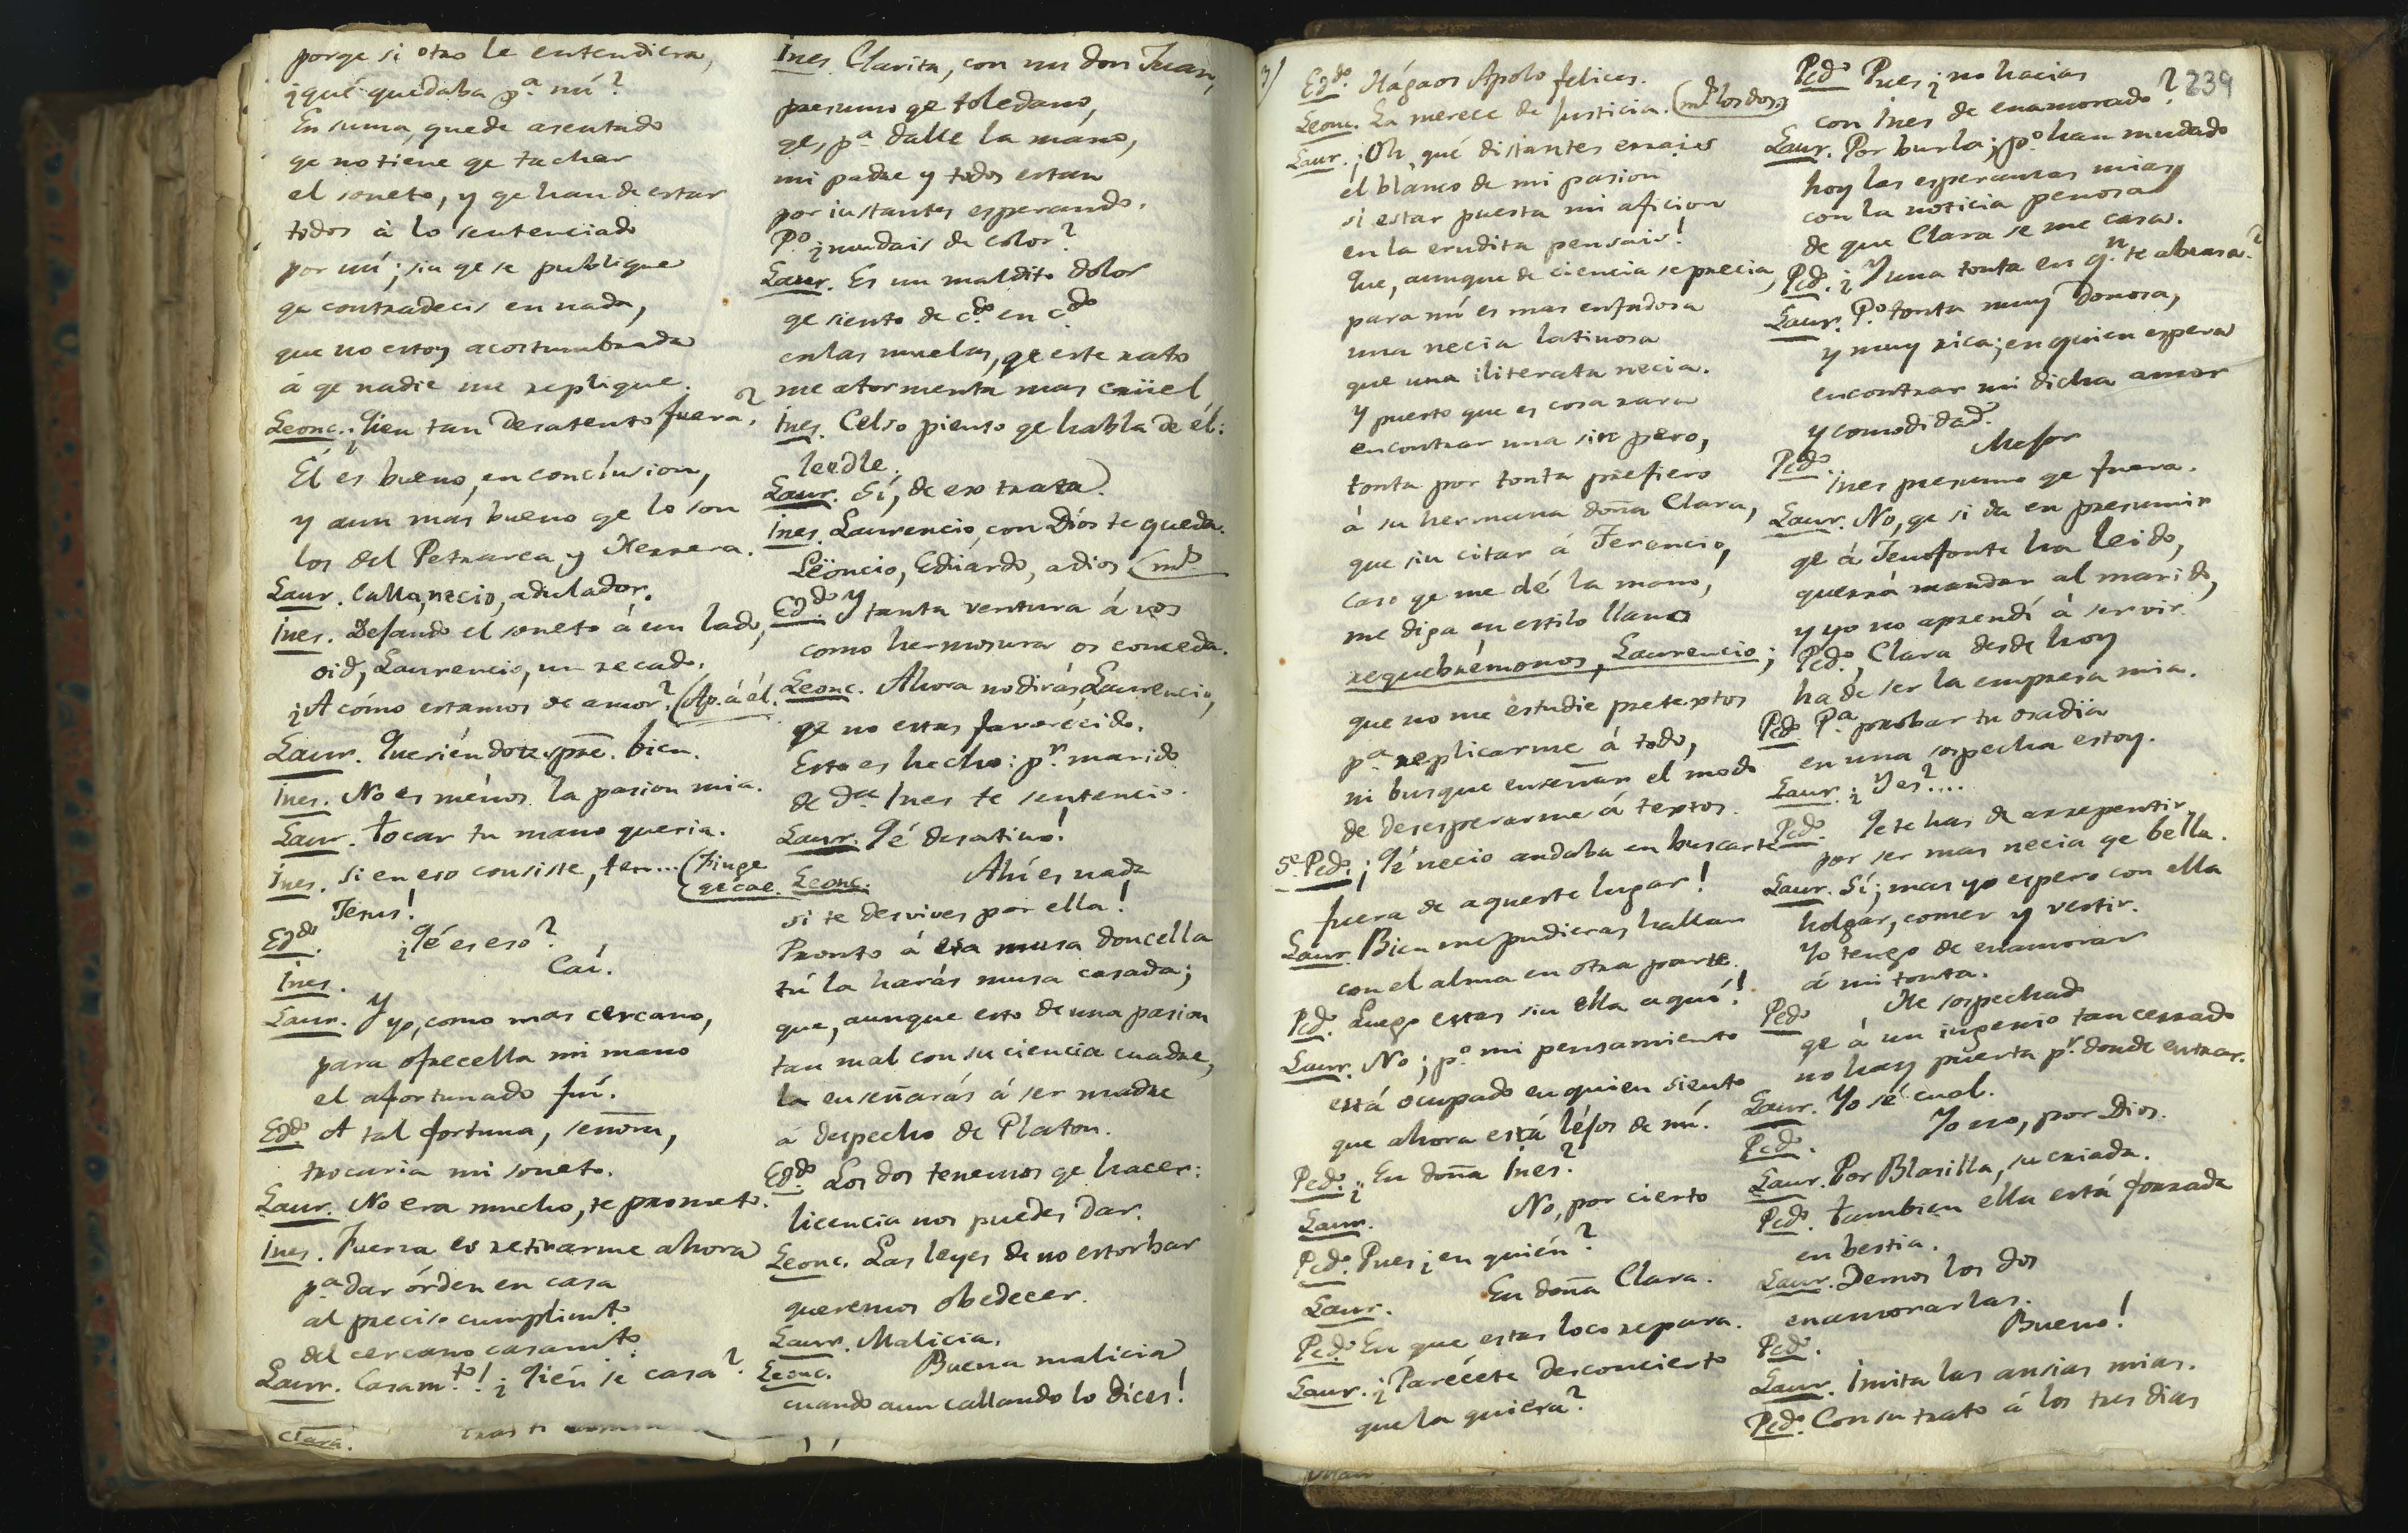 porqe si otro le entendiera,
¿qué quedaba pª. mí?
En suma, quede asentado
qe no tiene qe tachar
el soneto, y qe han de estar
todos á lo sentenciado
por mí; sin qe se publique
qe contradecis en nada,
que no estoy acostumbrada
á qe nadie me replique.
Leonc. ¿Qien tan desatento fuera?
Él es bueno, en conclusion,
y aun más bueno qe lo son
los del Petrarca y Herrera.
Laur. Calla, necio, adulador.
Ines. Dejando el soneto á un lado,
oid, Laurencio, un recado.
¿A cómo estamos de amor? (Ap. á él.
Laur. Queriéndote spre. bien.
Ines. No es ménos la pasion mia.
Laur. Tocar tu mano queria.
Ines. Si en eso consiste, ten... (Finge
(qe cae.
Jesus!
Eddo. ¿Qé es eso?
Ines. Caí.
Laur. Y yo, como mas cercano,
para ofrecella mi mano
el afortunado fuí.
Eddo. A tal fortuna, señora,
trocaria mi soneto.
Laur. No era mucho, te prometo.
Ines. Fuerza es retirarme ahora
pª. dar órden en casa
al preciso cumplimto.
del cercano casamto.
Laur. Casamto.! ¿Qién se casa?
Clara.
Ines. Clarita, con un don Juan,
presumo qe toledano,
qe, pª. dalle la mano,
mi padre y todos estan
por instantes esperando.
Pº. ¿mudais de color?
Laur. Es un maldito dolor
qe siento de cdo. en cdo.
en las muelas, qe este rato
me atormenta mas crüel
Ines. Celso pienso qe habla de él:
leedle.
Laur. Sí, de eso trata.
Ines. Laurencio, con Dios te queda.
Leöncio, Edüardo, adios (me.
Eddo. Y tanta ventura á vos
como hermosura os conceda.
Leonc. Ahora no dirás, Laurencio,
qe no estas favorecido.
Esto es hecho: pr. marido
de dª. Ines te sentencio.
Laur. Qé desatino!
Leonc. Ahí es nada
si te desvives por ella!
Pronto á esa musa doncella
tú la harás musa casada;
que, aunque esto de una pasion
tan mal con su ciencia cuadre,
la enseñarás á ser madre
á despecho de Platon.
Eddo. Los dos tenemos qe hacer:
licencia nos puedes dar.
Leonc. Las leyes de no estorbar
queremos obedecer.
Laur. Malicia.
Leonc. Buena malicia
cuando aun callando lo dices!
239
Eddo. Hágaos Apolo felices.
Leonc. La merece de justicia. (me. los dos.
Laur. ¡Oh, qué distantes errais
el blanco de mi pasion
si estar puesta mi aficion
en la erudita pensais!
Que, aunque de ciencia se precia,
para mí es mas enfadosa
una necia latinosa
que una iliterata necia.
Y puesto que es cosa rara
encontrar una sin pero,
tonta por tonta prefiero
á su hermana doña Clara,
que sin citar á Terencio,
caso qe me dé la mano,
me diga en estilo llano
requebrémonos, Laurencio;
que no me estudie pretextos
pª. replicarme á todo,
ni busque enseñar el modo
de desesperarme á textos.
5ª. Pedo. ¡Qé necio andaba en buscarte
fuera de aqueste lugar!
Laur. Bien me pudieras hallar
con el alma en otra parte.
Pedo. Luego estas sin ella aquí!
Laur. No; pº. mi pensamiento
está ocupado en quien siento
que ahora está léjos de mí.
Pedo. ¿En doña Ines?
Laur. No, por cierto
Pedo. Pues ¿en quién?
Laur. En doña Clara.
Pedo. En que estas loco repara.
Laur. ¿Parécete desconcierto
que la quiera?
Pedo. Pues ¿no hacias
con Ines de enamorado?
Laur. Por burla; pº. han mudado
hoy las esperanzas mias
con la noticia penosa
de que Clara se me casa.
Pedo. ¿Y una tonta es qn. te abrasa?
Laur. Pº. tonta muy donosa,
y muy rica; en quien espera
encontrar mi dicha amor
y comodidad.
Pedo. Mejor
Ines presumo qe fuera.
Laur. No, qe si da en presumir
qe á Jenofonte ha leido,
querrá mandar al marido,
y yo no aprendí á servir.
Pedo. Clara desde hoy
ha de ser la empresa mia.
Pedo. Pª. probar tu osadia
en una sospecha estoy.
Laur. ¿Y es?....
Pedo. Qe te has de arrepentir
por ser mas necia qe bella.
Laur. Sí; mas yo espero con ella
holgar, comer y vestir.
Yo tengo de enamorar
á mi tonta.
Pedo. He sospechado
qe á un ingenio tan cerrado
no hay puerta pr. donde entrar.
Laur. Yo sé cual.
Pedo. Yo no, por Dios.
Laur. Por Blasilla, su criada.
Pedo. Tambien ella está forrada
en bestia.
Laur. Demos los dos
enamorarlas.
Pedo. Bueno!
Laur. Imita las ansias mias.
Pedo. Con su trato á los tres dias